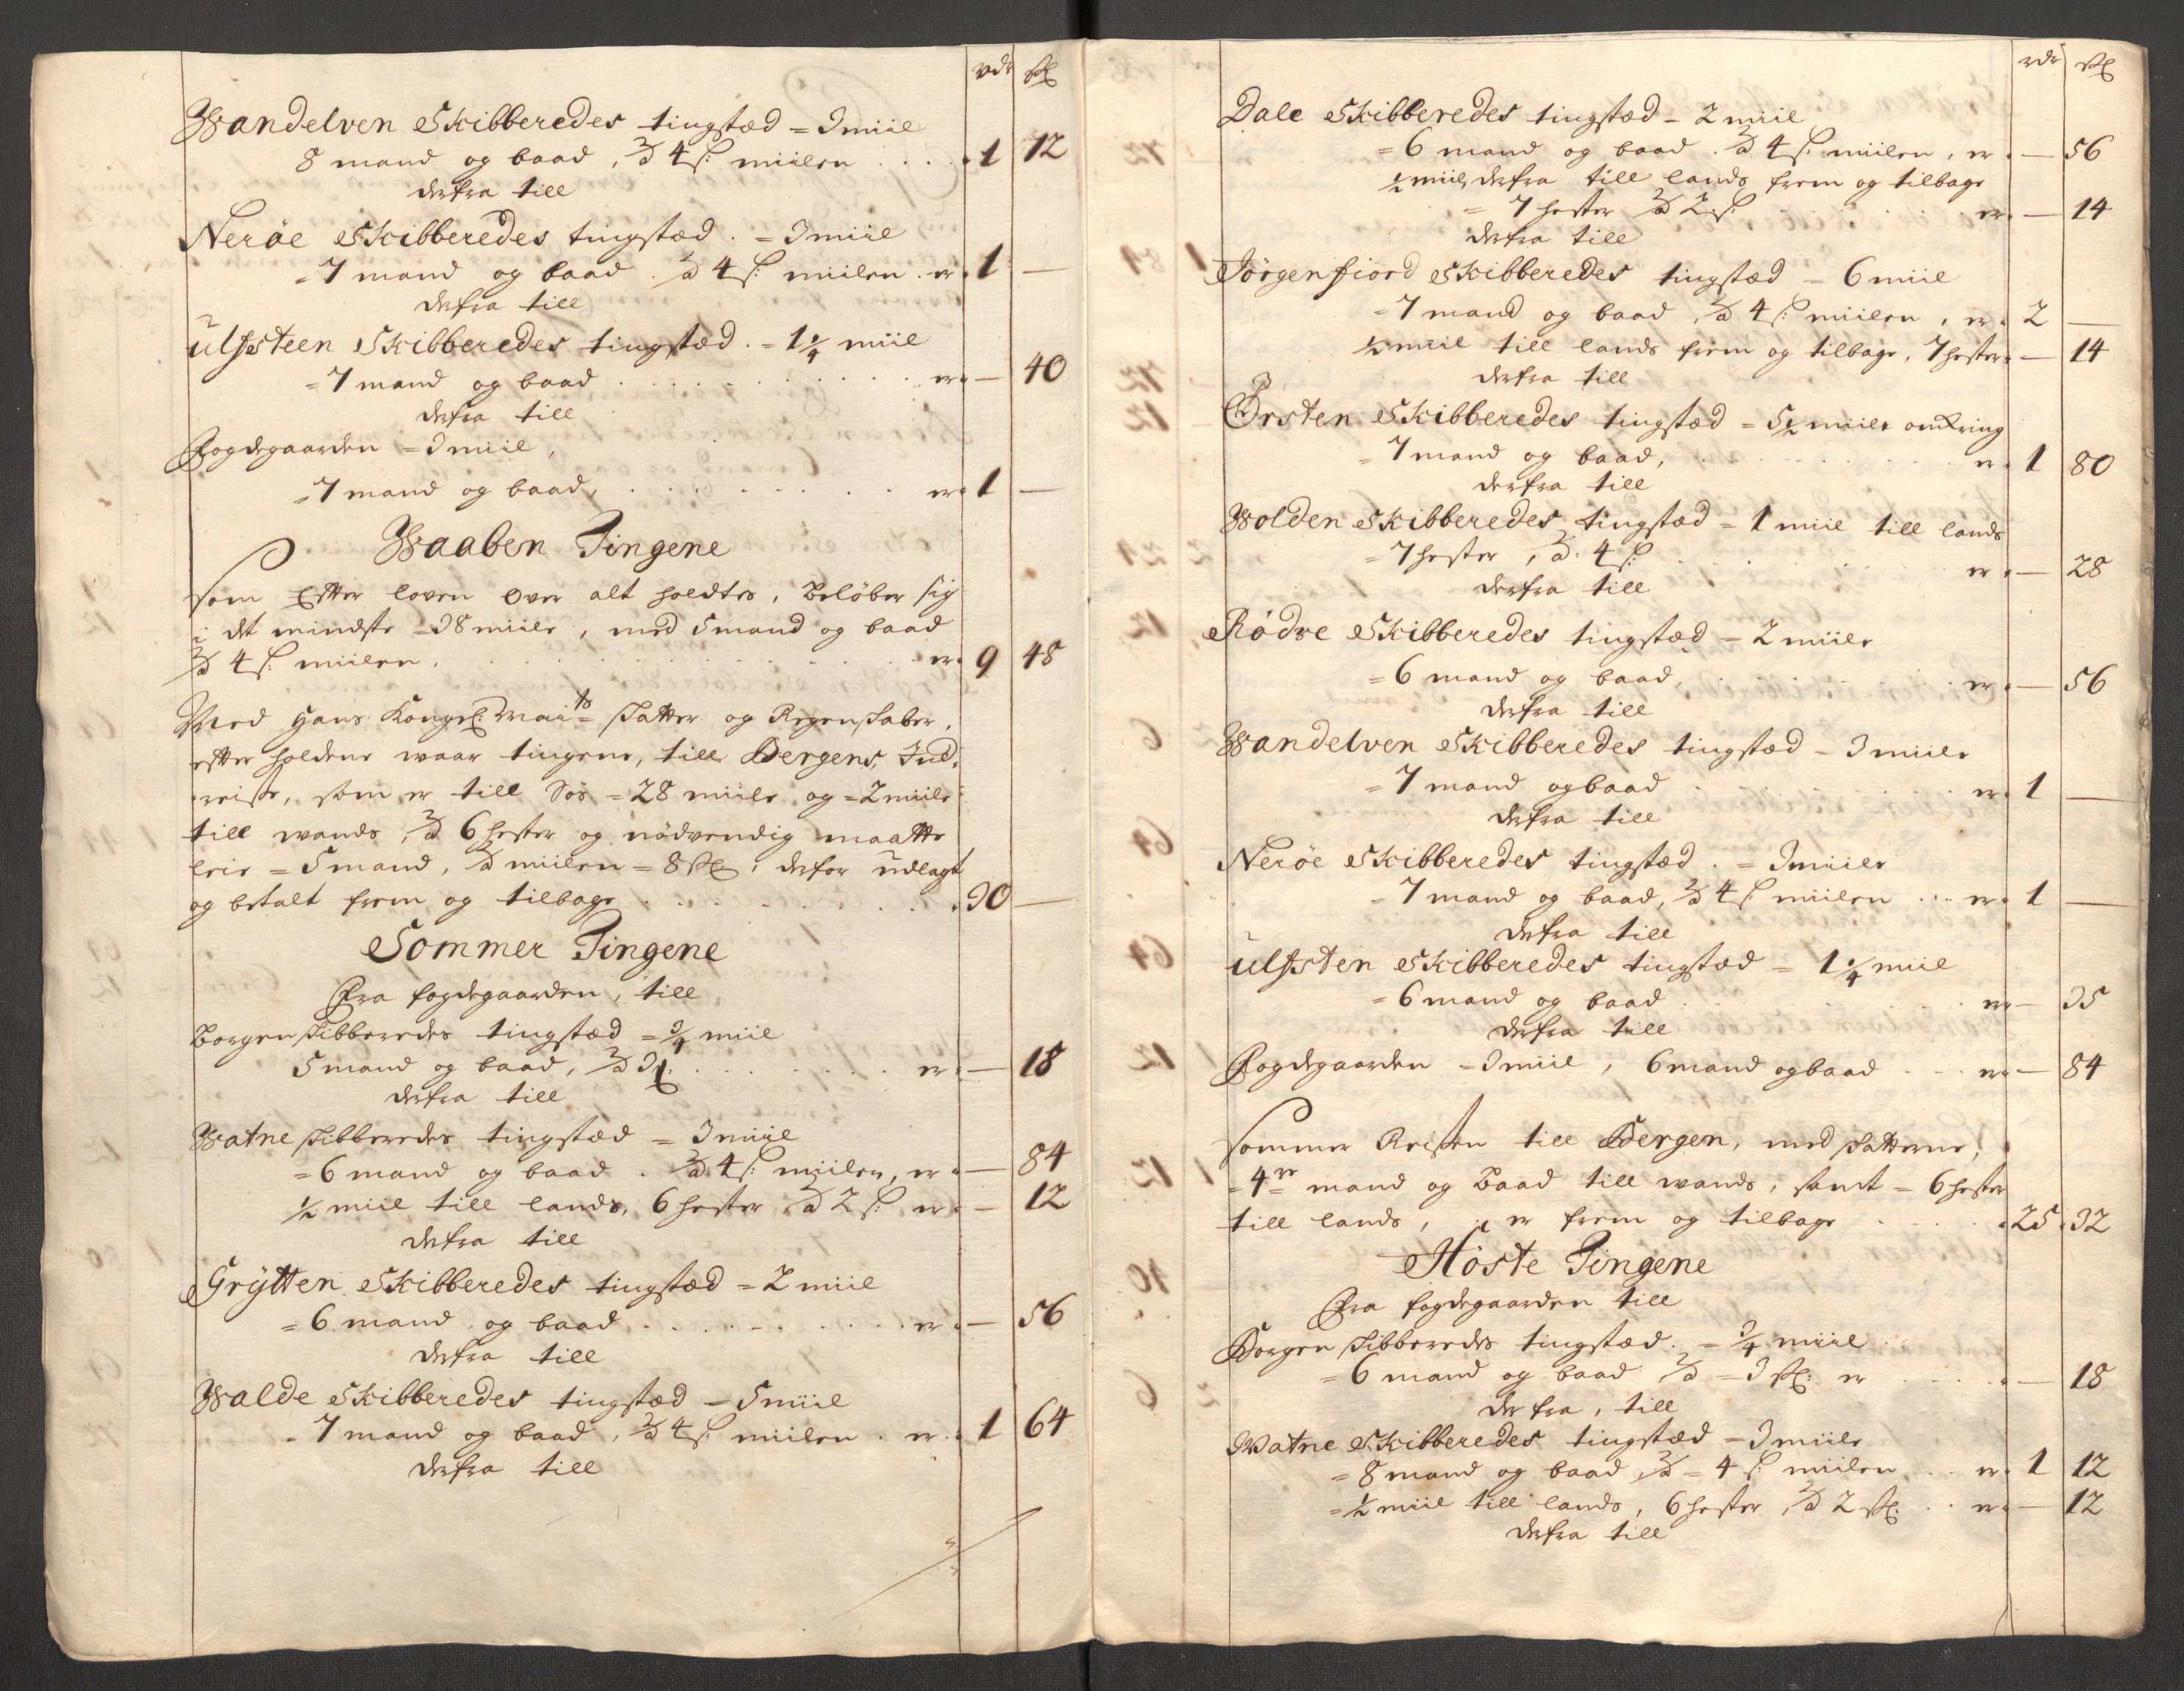 rdr sk
Wandelven Skibberedes tingstæd = 3 miil
8 mand og baad, à 4 s: miilen . . . . 1 12
derfra till
Nerøe Skibberedes tingstæd. = 3 miil
= 7 mand og baad. à 4 s: miilen. er. 1 —
derfra till
Ulfsteen Skibberedes tingstæd. = 1 1/4 miil
= 7 mand og baad . . . . . . er. — 40
derfra till
Fogdegaarden = 3 miil,
= 7 mand og baad, . . . . . . er. 1 —
Waaben Tingene
Som Efter loven over alt holdtes, beløber sig
i det mindste = 38 miile, med 5 mand og baad
à 4 s: miilen. . . . . . . er. 9 48
Med Hans Kongel: Mai ts Skatter og Regenskaber,
efter holdene waar tingene, till Bergens, Ind-
reise, som er till Søs = 28 miile og = 2 miile
till wands, à 6 hester og nødvendig maatte
leie = 5 mand, à miilen = 8 sk, derfor udlagt
og betalt frem og tilbage . . . . . 30 —
Sommer Tingene
Fra fogdegaarden, till
Borgen skibberedes tingstæd = 3/4 miil
5 mand og baad, à 3 s. . . . . . er. — 18
derfra till
Watne skibberedes tingstæd = 3 miil
= 6 mand og baad. à 4 s: miilen, er. — 84
1/2 miil till lands, 6 hester à 2 s: er. — 12
derfra till
Grÿtten Skibberedes tingstæd = 2 miil
= 6 mand og baad . . . . . . er. — 56
derfra till
Walde Skibberedes tingstæd = 5 miil
= 7 mand og baad, à 4 s: miilen. er. 1 64
derfra till
rdr sk
Dale Skibberedes tingstæd = 2 miil
= 6 mand og baad. à 4 s: miilen, er. — 56
1/2 miil derfra till lands frem og tilbage
= 7 hester à 2 s: er. — 14
derfra till
Jörgenfiord Skibberedes tingstæd = 6 miil
= 7 mand og baad, à 4 s: miilen, er. 2 —
1/2 miil till lands frem og tilbage, 7 hester — 14
derfra till
Örsten Skibberedes tingstæd = 5 1/2 miile omkring
= 7 mand og baad, . . . . . er. 1 80
derfra till
Wolden Skibberedes tingstæd = 1 miil till lands
= 7 hester, à 4 s: . . . . . er. — 28
derfra till
Rödve Skibberedes tingstæd = 2 miile
= 6 mand og baad, . . . . . er. — 56
derfra till
Wandelven Skibberedes tingstæd = 3 miile
= 7 mand og baad . . . . . er. 1 —
derfra till
Nerøe Skibberedes tingstæd. = 3 miile
= 7 mand og baad, à 4 s: miilen . . . er. 1 —
derfra till
Ulfsten Skibberedes tingstæd = 1 1/4 miil
= 6 mand og baad . . . . . er — 35
derfra till
Fogdegaarden = 3 miil, 6 mand og baad . . . er. — 84
Sommer Reisen till Bergen, med skatterne,
= 4 re mand og Baad till wands, samt = 6 hester
till lands, er frem og tilbage . . . . . 25. 32
Höste Tingene
Fra fogdegaarden till
Borgen skibberedes tingstæd. = 3/4 miil
= 6 mand og baad à = 3 sk: er . . . . — 18
derfra, till
Watne Skibberedes tingstæd = 3 miile
= 8 mand og baad, à = 4 s: miilen . . er. 1 12
= 1/2 miil till lands, 6 hester, à 2 sk: . . er. — 12
derfra till